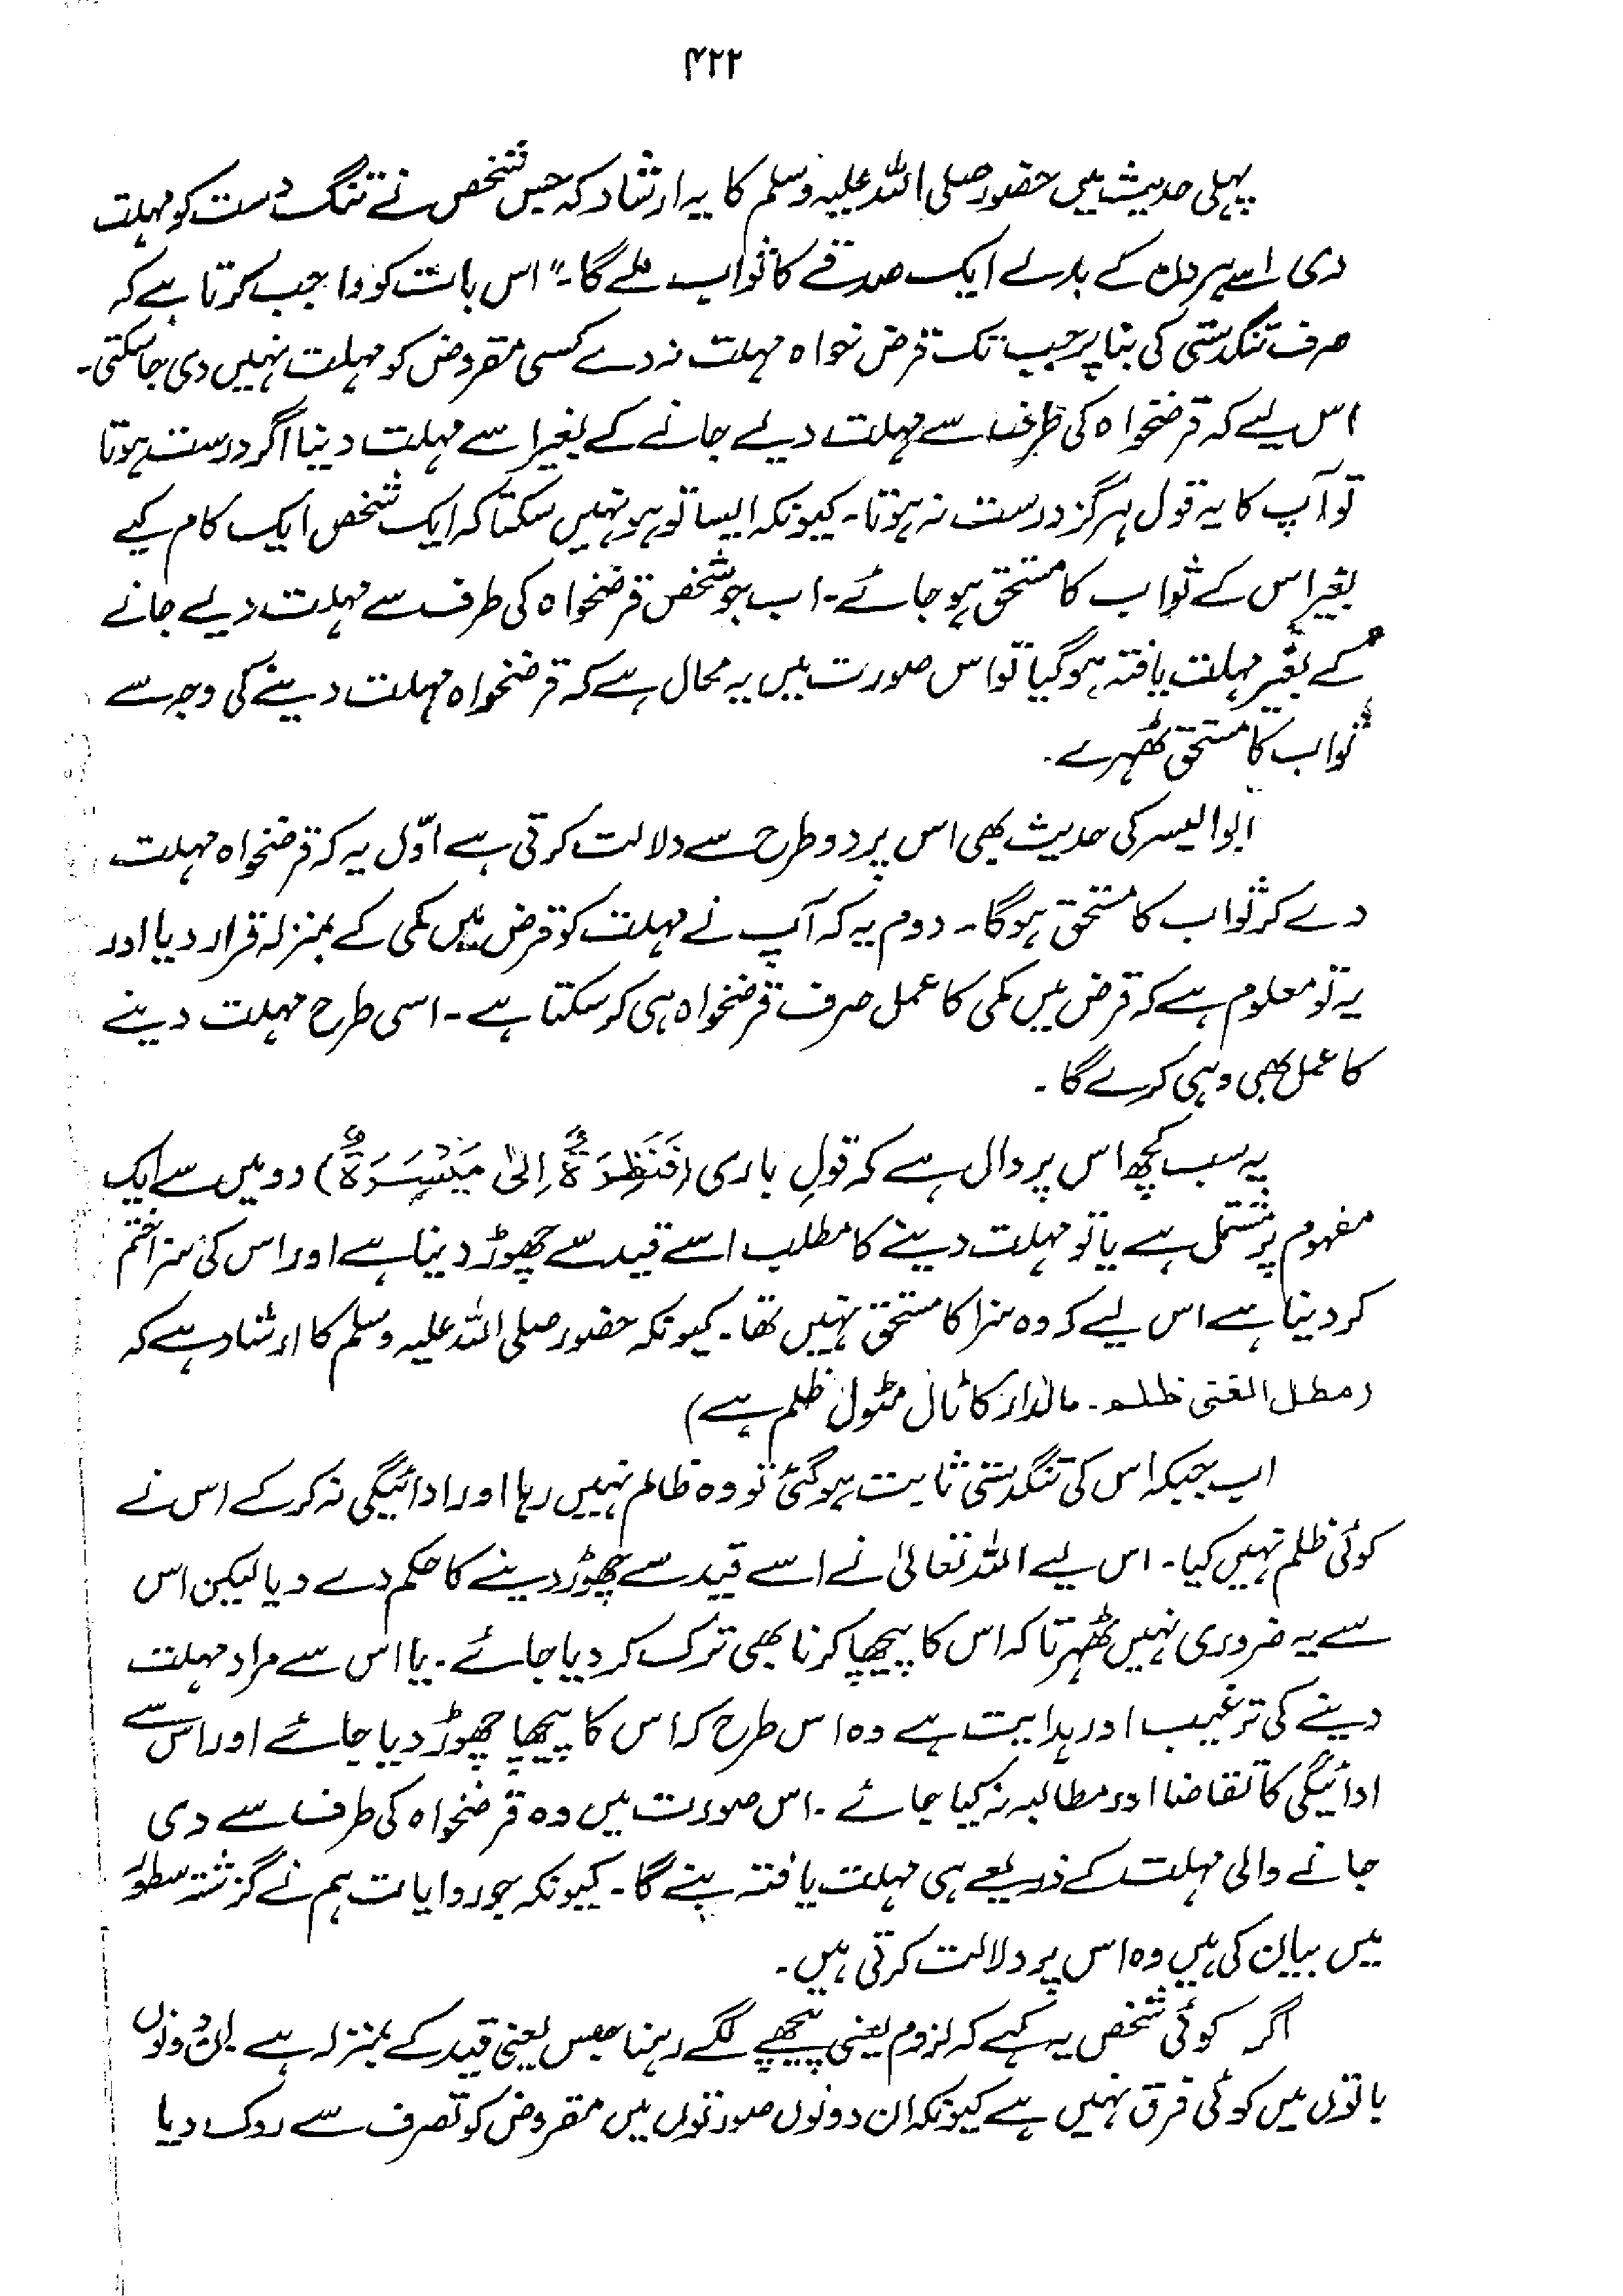 ۴۲۲
پہلی حدیث میں حضور صلی اللہ علیہ وسلم کا یہ ارشاد کہ جس شخص نے تنگ دست کو مہلت
دی اسے ہر دن کے بدلے ایک صدقے کا ثواب ملے گا۔" اس بات کو واجب کرتا ہے کہ
صرف تنگدستی کی بنا پر جب تک قرض خواہ مہلت نہ دے کسی مقروض کو مہلت نہیں دی جا سکتی۔
اس لیے کہ قرضخواہ کی طرف سے مہلت دیے جانے کے بغیر اسے مہلت دینا اگر درست ہوتا
تو آپ کا یہ قول ہرگز درست نہ ہوتا۔ کیونکہ ایسا تو ہو نہیں سکتا کہ ایک شخص ایک کام کیے
بغیر اس کے ثواب کا مستحق ہو جائے۔ اب جو شخص قرضخواہ کی طرف سے مہلت دیے جانے
کے بغیر مہلت یافتہ ہو گیا تو اس صورت میں یہ محال ہے کہ قرضخواہ مہلت دینے کی وجہ سے
ثواب کا مستحق ٹھہرے۔
ابو الیسر کی حدیث بھی اس پر دو طرح سے دلالت کرتی ہے اوّل یہ کہ قرضخواہ مہلت
دے کر ثواب کا مستحق ہوگا۔ دوم یہ کہ آپ نے مہلت کو قرض میں کمی کے بمنزلہ قرار دیا اور
یہ تو معلوم ہے کہ قرض میں کمی کا عمل صرف قرضخواہ ہی کر سکتا ہے۔ اسی طرح مہلت دینے
کا عمل بھی وہی کرے گا۔
یہ سب کچھ اس پر دال ہے کہ قولِ باری (فَنَظِرَةٌ اِلیٰ مَیْسَرَةٍ) دو میں سے ایک
مفہوم پر مشتمل ہے یا تو مہلت دینے کا مطلب اسے قید سے چھوڑ دینا ہے اور اس کی سزا ختم
کر دینا ہے اس لیے کہ وہ سزا کا مستحق نہیں تھا۔ کیونکہ حضور صلی اللہ علیہ وسلم کا ارشاد ہے کہ
(مطل الغنی ظلم۔ مالدار کا ٹال مٹول ظلم ہے)
اب جبکہ اس کی تنگدستی ثابت ہو گئی تو وہ ظالم نہیں رہا اور ادائیگی نہ کر کے اس نے
کوئی ظلم نہیں کیا۔ اس لیے اللہ تعالیٰ نے اسے قید سے چھوڑ دینے کا حکم دے دیا لیکن اس
سے یہ ضروری نہیں ٹھہرتا کہ اس کا پیچھا کرنا بھی ترک کر دیا جائے۔ یا اس سے مراد مہلت
دینے کی ترغیب اور ہدایت ہے وہ اس طرح کہ اس کا پیچھا چھوڑ دیا جائے اور اس سے
ادائیگی کا تقاضا اور مطالبہ نہ کیا جائے۔ اس صورت میں وہ قرضخواہ کی طرف سے دی
جانے والی مہلت کے ذریعے ہی مہلت یافتہ بنے گا۔ کیونکہ جو روایات ہم نے گزشتہ سطور
میں بیان کی ہیں وہ اس پر دلالت کرتی ہیں۔
اگر کوئی شخص یہ کہے کہ لزوم یعنی پیچھے لگے رہنا حبس یعنی قید کے بمنزلہ ہے۔ ان دونوں
باتوں میں کوئی فرق نہیں ہے کیونکہ ان دونوں صورتوں میں مقروض کو تصرف سے روک دیا